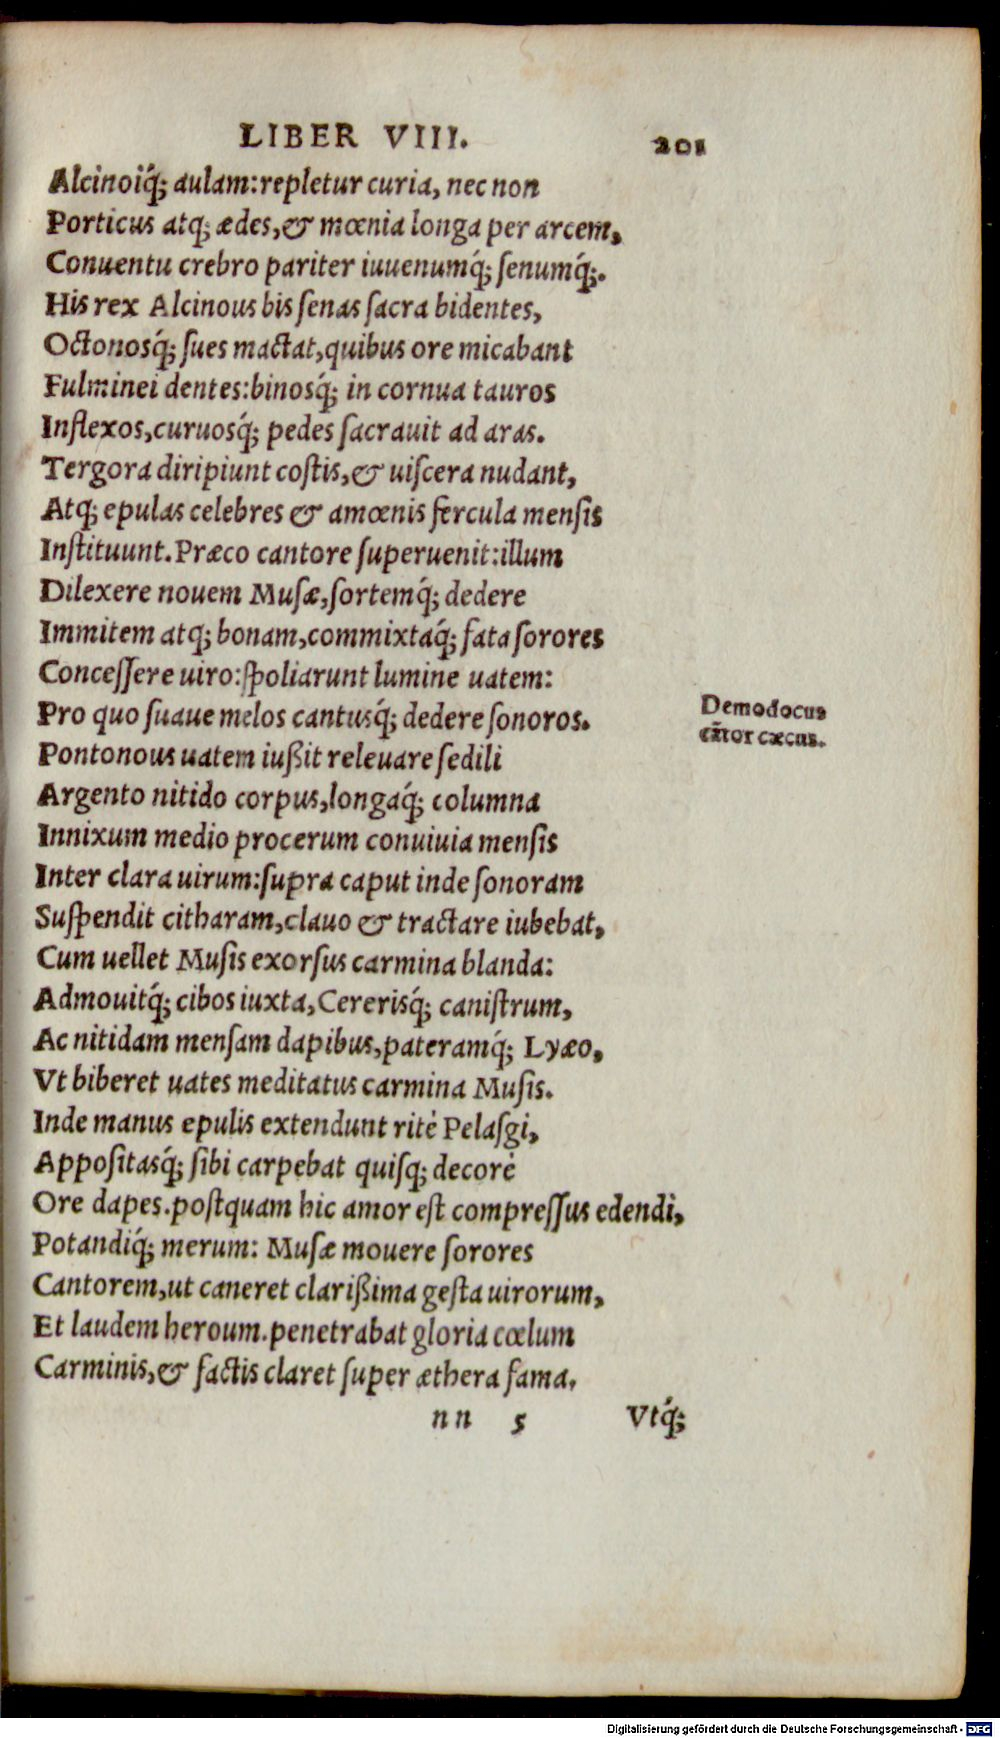 LIBER VIII. 201
Alcinoiq́; aulam:repletur curia, nec non
Porticus atq; ædes,& mœnia longa per arcem,
Conuentu crebro pariter iuuenumq́; ſenumq́;.
His rex Alcinous bis ſenas ſacra bidentes,
Octonosq́; ſues mactat,quibus ore micabant
Fulminei dentes:binosq́; in cornua tauros
Inflexos,curuosq́; pedes ſacrauit ad aras.
Tergora diripiunt coſtis,& uiſcera nudant,
Atq; epulas celebres & amœnis fercula menſis
Inſtituunt.Præco cantore ſuperuenit:illum
Dilexere nouem Muſæ,ſortemq́; dedere
Immitem atq; bonam,commixtaq́; fata ſorores
Conceſſere uiro:ſpoliarunt lumine uatem:
Pro quo ſuaue melos cantusq́; dedere ſonoros.
Demodocus
cãtor cæcus.
Pontonous uatem iußit releuare ſedili
Argento nitido corpus,longaq́; columna
Innixum medio procerum conuiuia menſis
Inter clara uirum:ſupra caput inde ſonoram
Suſpendit citharam,clauo & tractare iubebat,
Cum uellet Muſis exorſus carmina blanda:
Admouitq́; cibos iuxta,Cererisq́; caniſtrum,
Ac nitidam menſam dapibus,pateramq́; Lyæo,
Vt biberet uates meditatus carmina Muſis.
Inde manus epulis extendunt ritè Pelaſgi,
Appoſitasq́; ſibi carpebat quiſq; decorè
Ore dapes.poſtquam hic amor eſt compreſſus edendi,
Potandiq́; merum: Muſæ mouere ſorores
Cantorem,ut caneret clarißima geſta uirorum,
Et laudem heroum.penetrabat gloria cœlum
Carminis,& factis claret ſuper æthera fama.
nn 5 Vtq́;
Digitalisierung gefördert durch die Deutsche Forschungsgemeinschaft - DFG